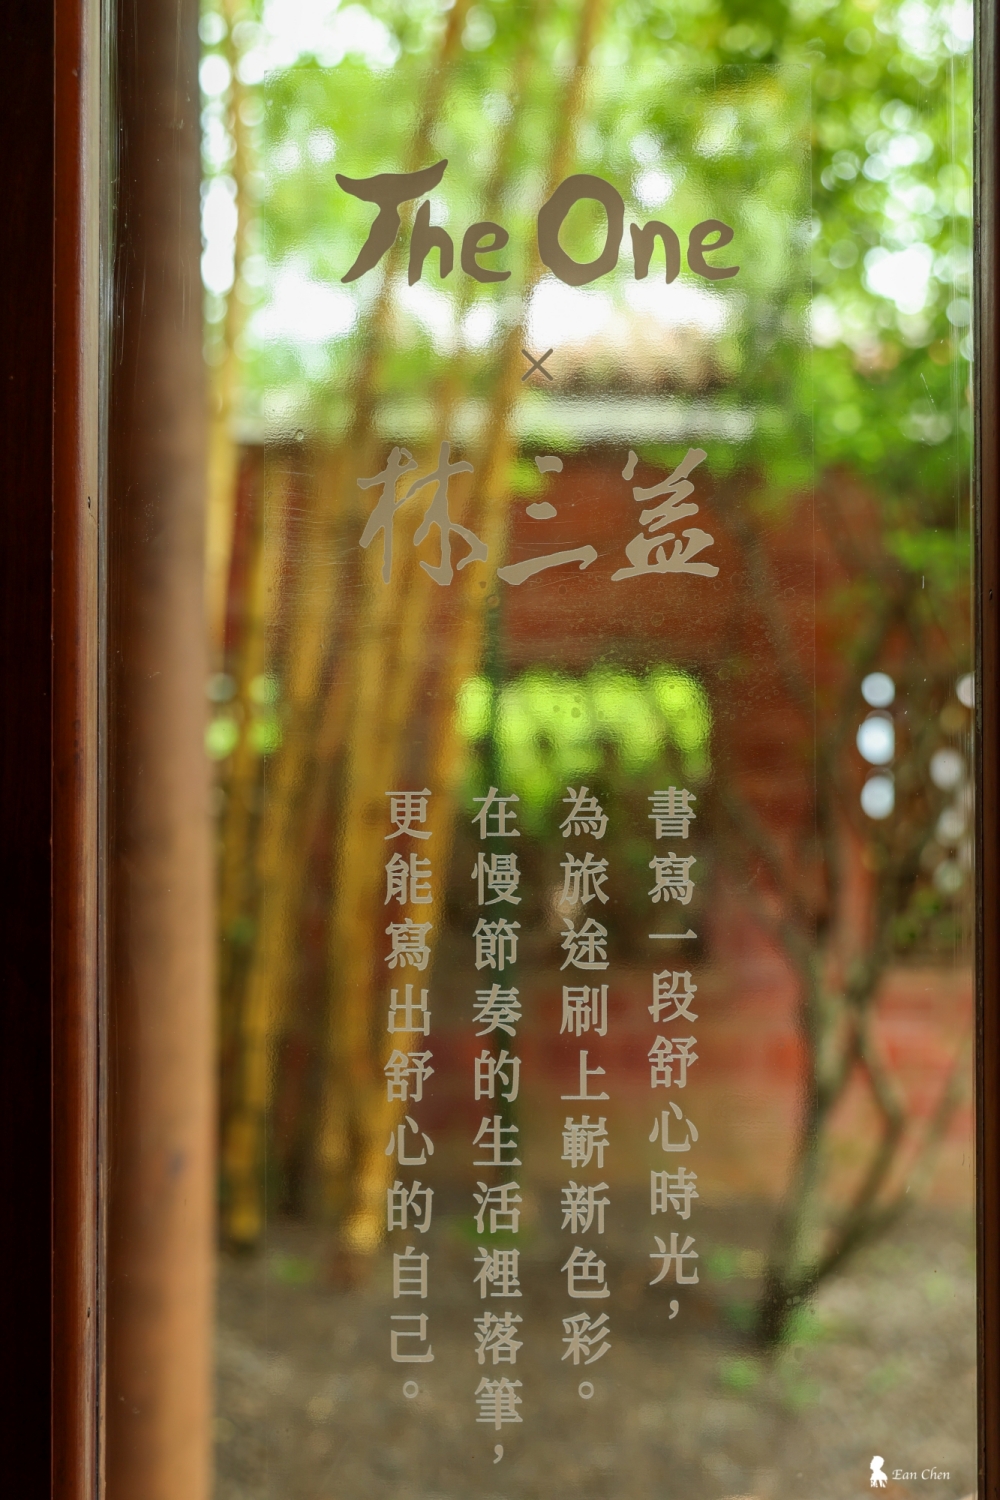 The One
×
林三益
書寫一段舒心時光，
為旅途刷上嶄新色彩。
在慢節奏的生活裡落筆，
更能寫出舒心的自己。
Ean Chen